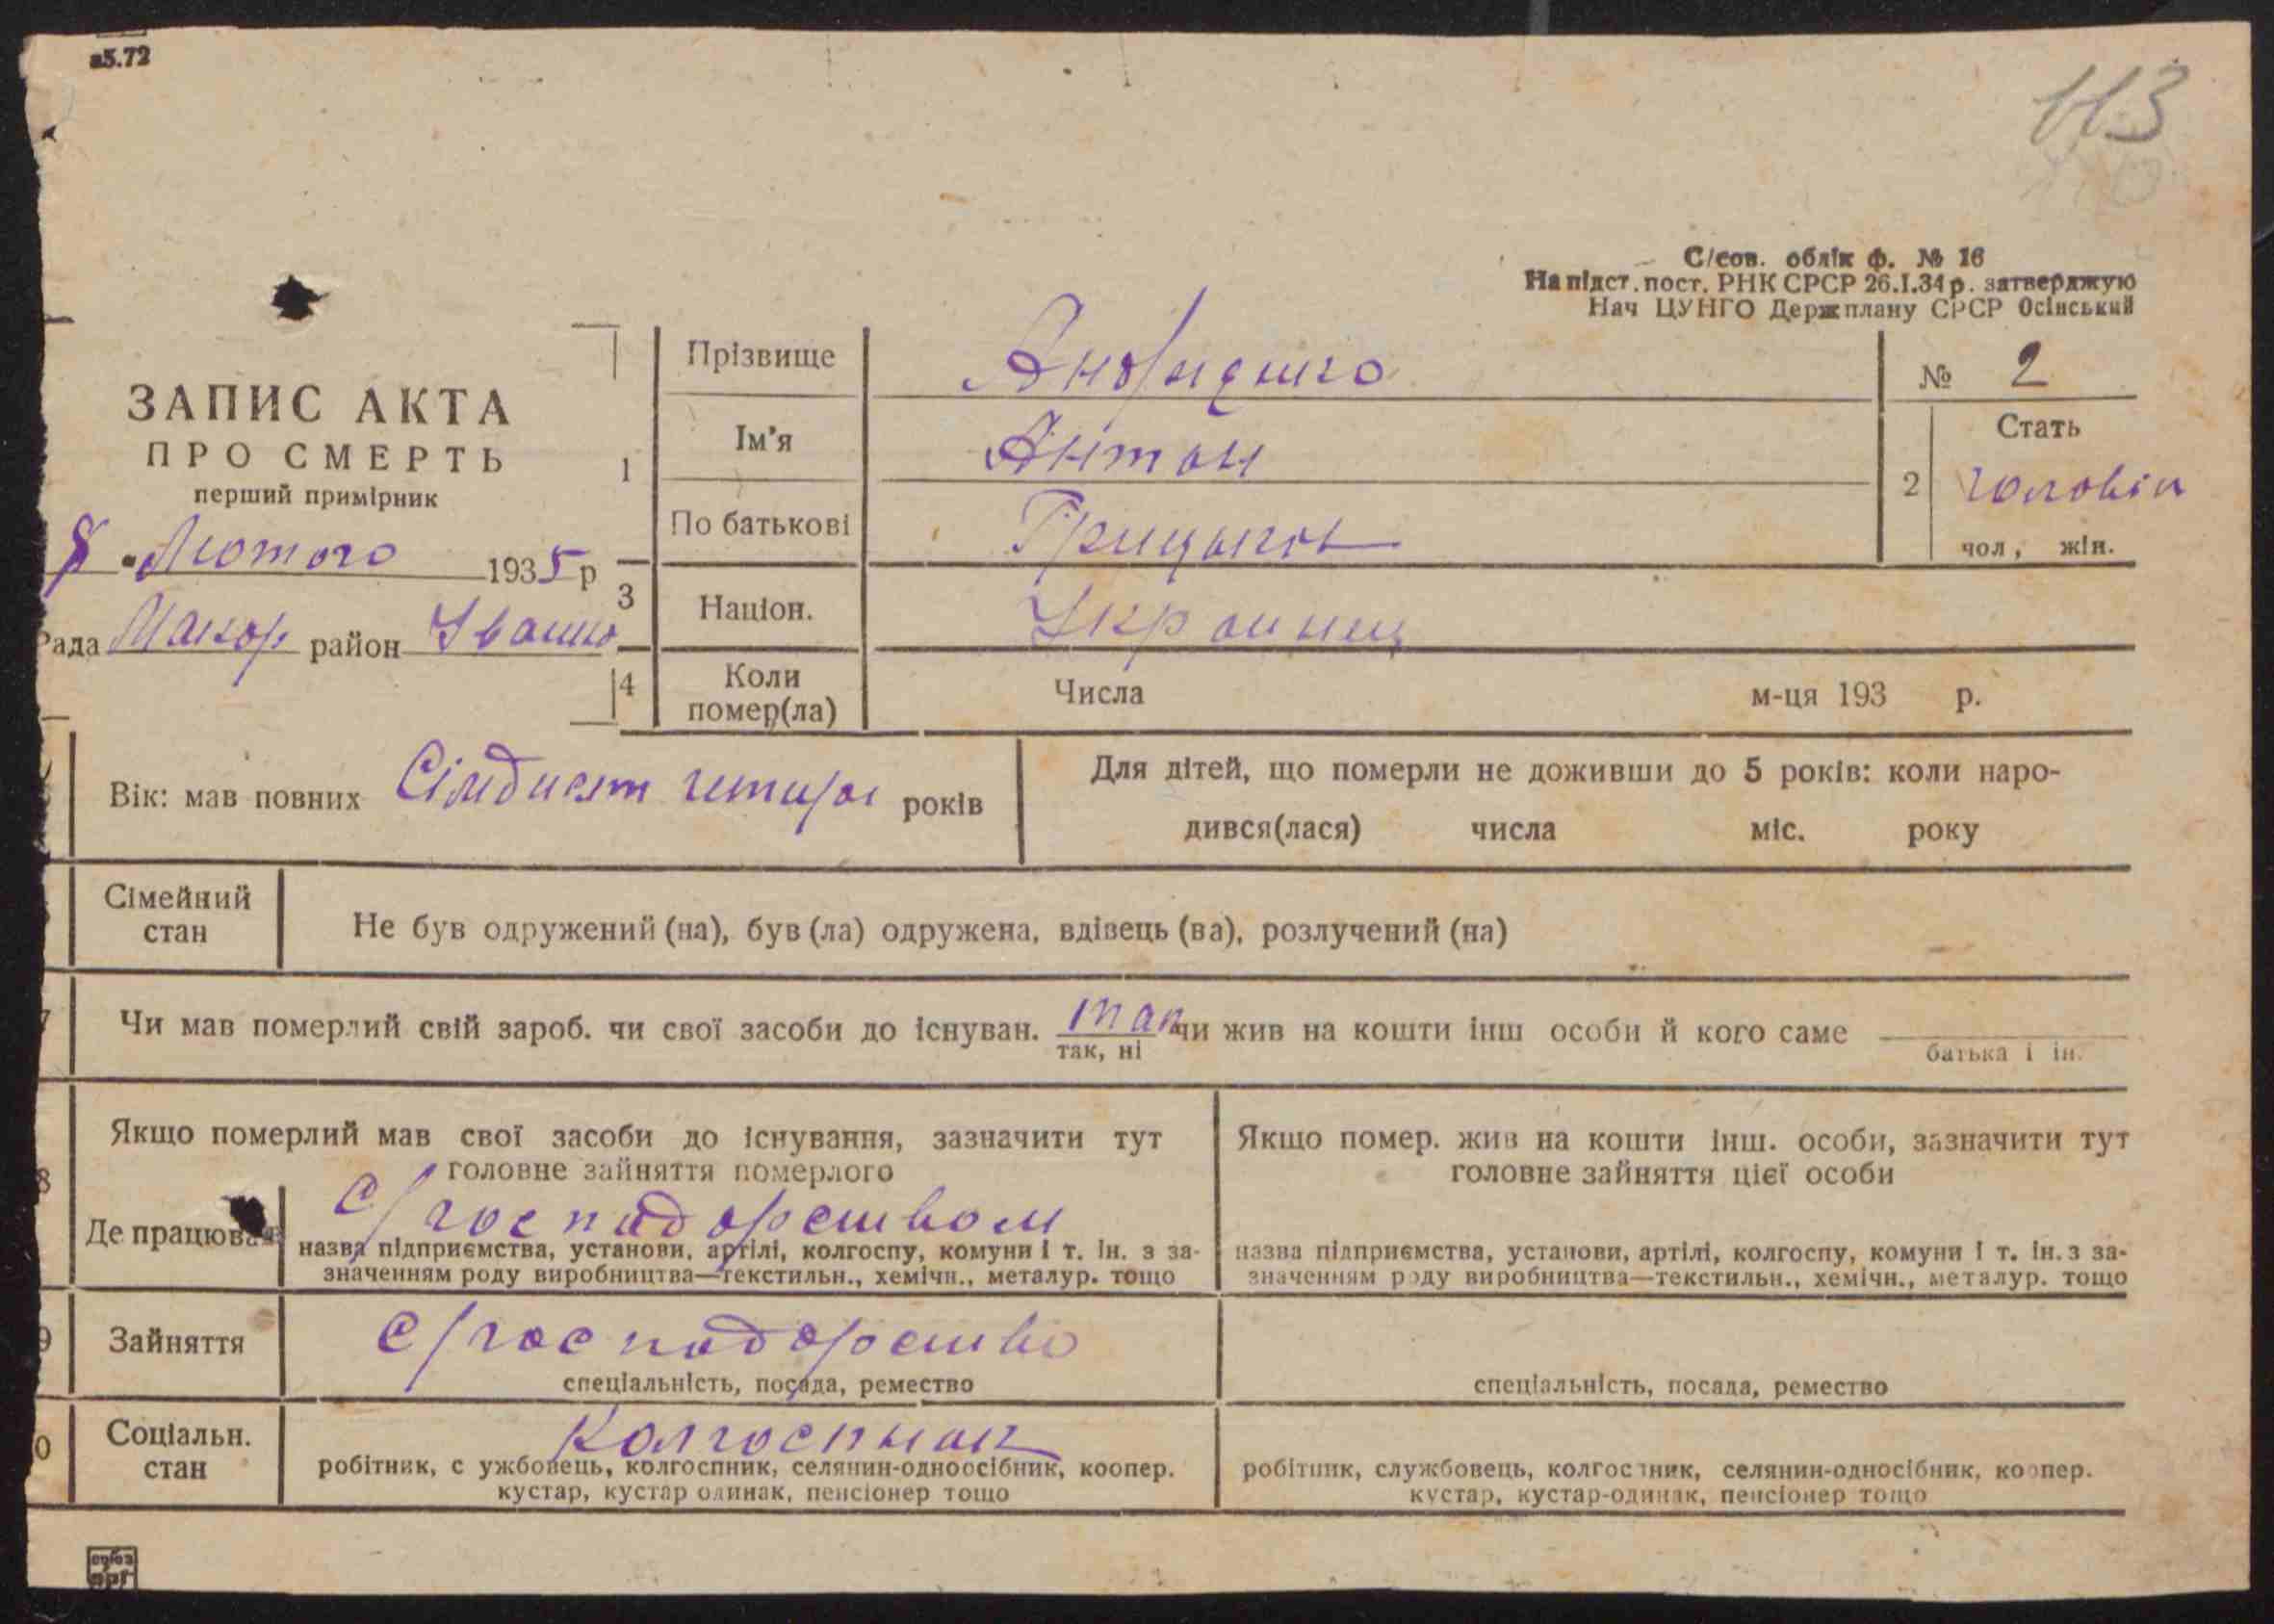 а5.72
113
С/сов. облік ф. № 16
На підст. пост. РНК СРСР 26.I.34 р. затверджую
Нач ЦУНГО Держплану СРСР Осінський
ЗАПИС АКТА
ПРО СМЕРТЬ
перший примірник
8 Лютого 1935 р
Рада Макор район Івашко
1
Прізвище
Ім’я Антон
По батькові
№ 2
2 Стать
чоловік
чол, жін.
3 Націон. Украинец
4 Коли помер(ла) Числа м-ця 193 р.
Вік: мав повних Сімдисят читирі років
Для дітей, що померли не доживши до 5 років: коли наро-
дився(лася) числа міс. року
Сімейний стан Не був одружений (на), був (ла) одружена, вдівець (ва), розлучений (на)
7 Чи мав померлий свій зароб. чи свої засоби до існуван. так чи жив на кошти інш особи й кого саме
так, ні батька і ін.
8 Якщо померлий мав свої засоби до існування, зазначити тут
головне зайняття померлого
Де працював с/господорством
назва підприємства, установи, артілі, колгоспу, комуни і т. ін. з за-
значенням роду виробництва—текстильн., хемічн., металур. тощо
Якщо помер. жив на кошти інш. особи, зазначити тут
головне зайняття цієї особи
назва підприємства, установи, артілі, колгоспу, комуни і т. ін. з за-
значенням роду виробництва—текстильн., хемічн., металур. тощо
9 Зайняття с/господорство
спеціальність, посада, ремество
спеціальність, посада, ремество
0 Соціальн. стан Колгоспник
робітник, с ужбовець, колгоспник, селянин-одноосібник, коопер.
кустар, кустар одинак, пенсіонер тощо
робітник, службовець, колгоспник, селянин-односібник, коопер.
кустар, кустар-одинак, пенсіонер тощо
союз
орг